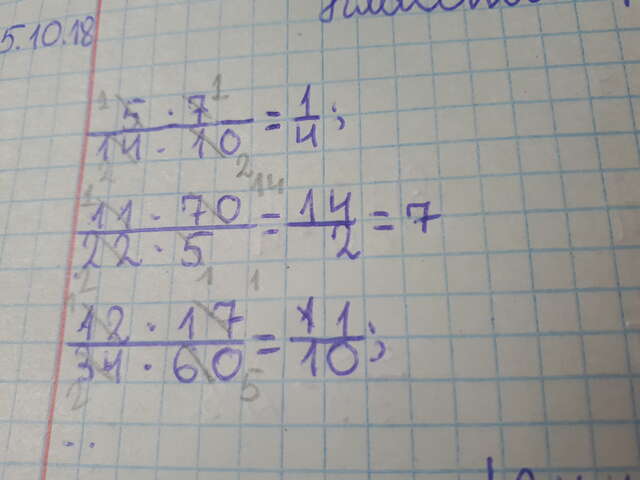 5.10.18
5 · 7 / 14 · 10 = 1/4;
11 · 70 / 22 · 5 = 14/2 = 7
12 · 17 / 34 · 60 = 1/10;